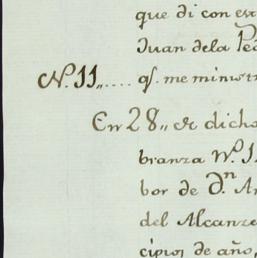 que di con est
Juan dela Peñ
N.º 11,,.... q.ᵉ me ministr
En 28,, de dicho
branza N.º 1
bor de D.ⁿ An
del Alcanze
cipios de año,